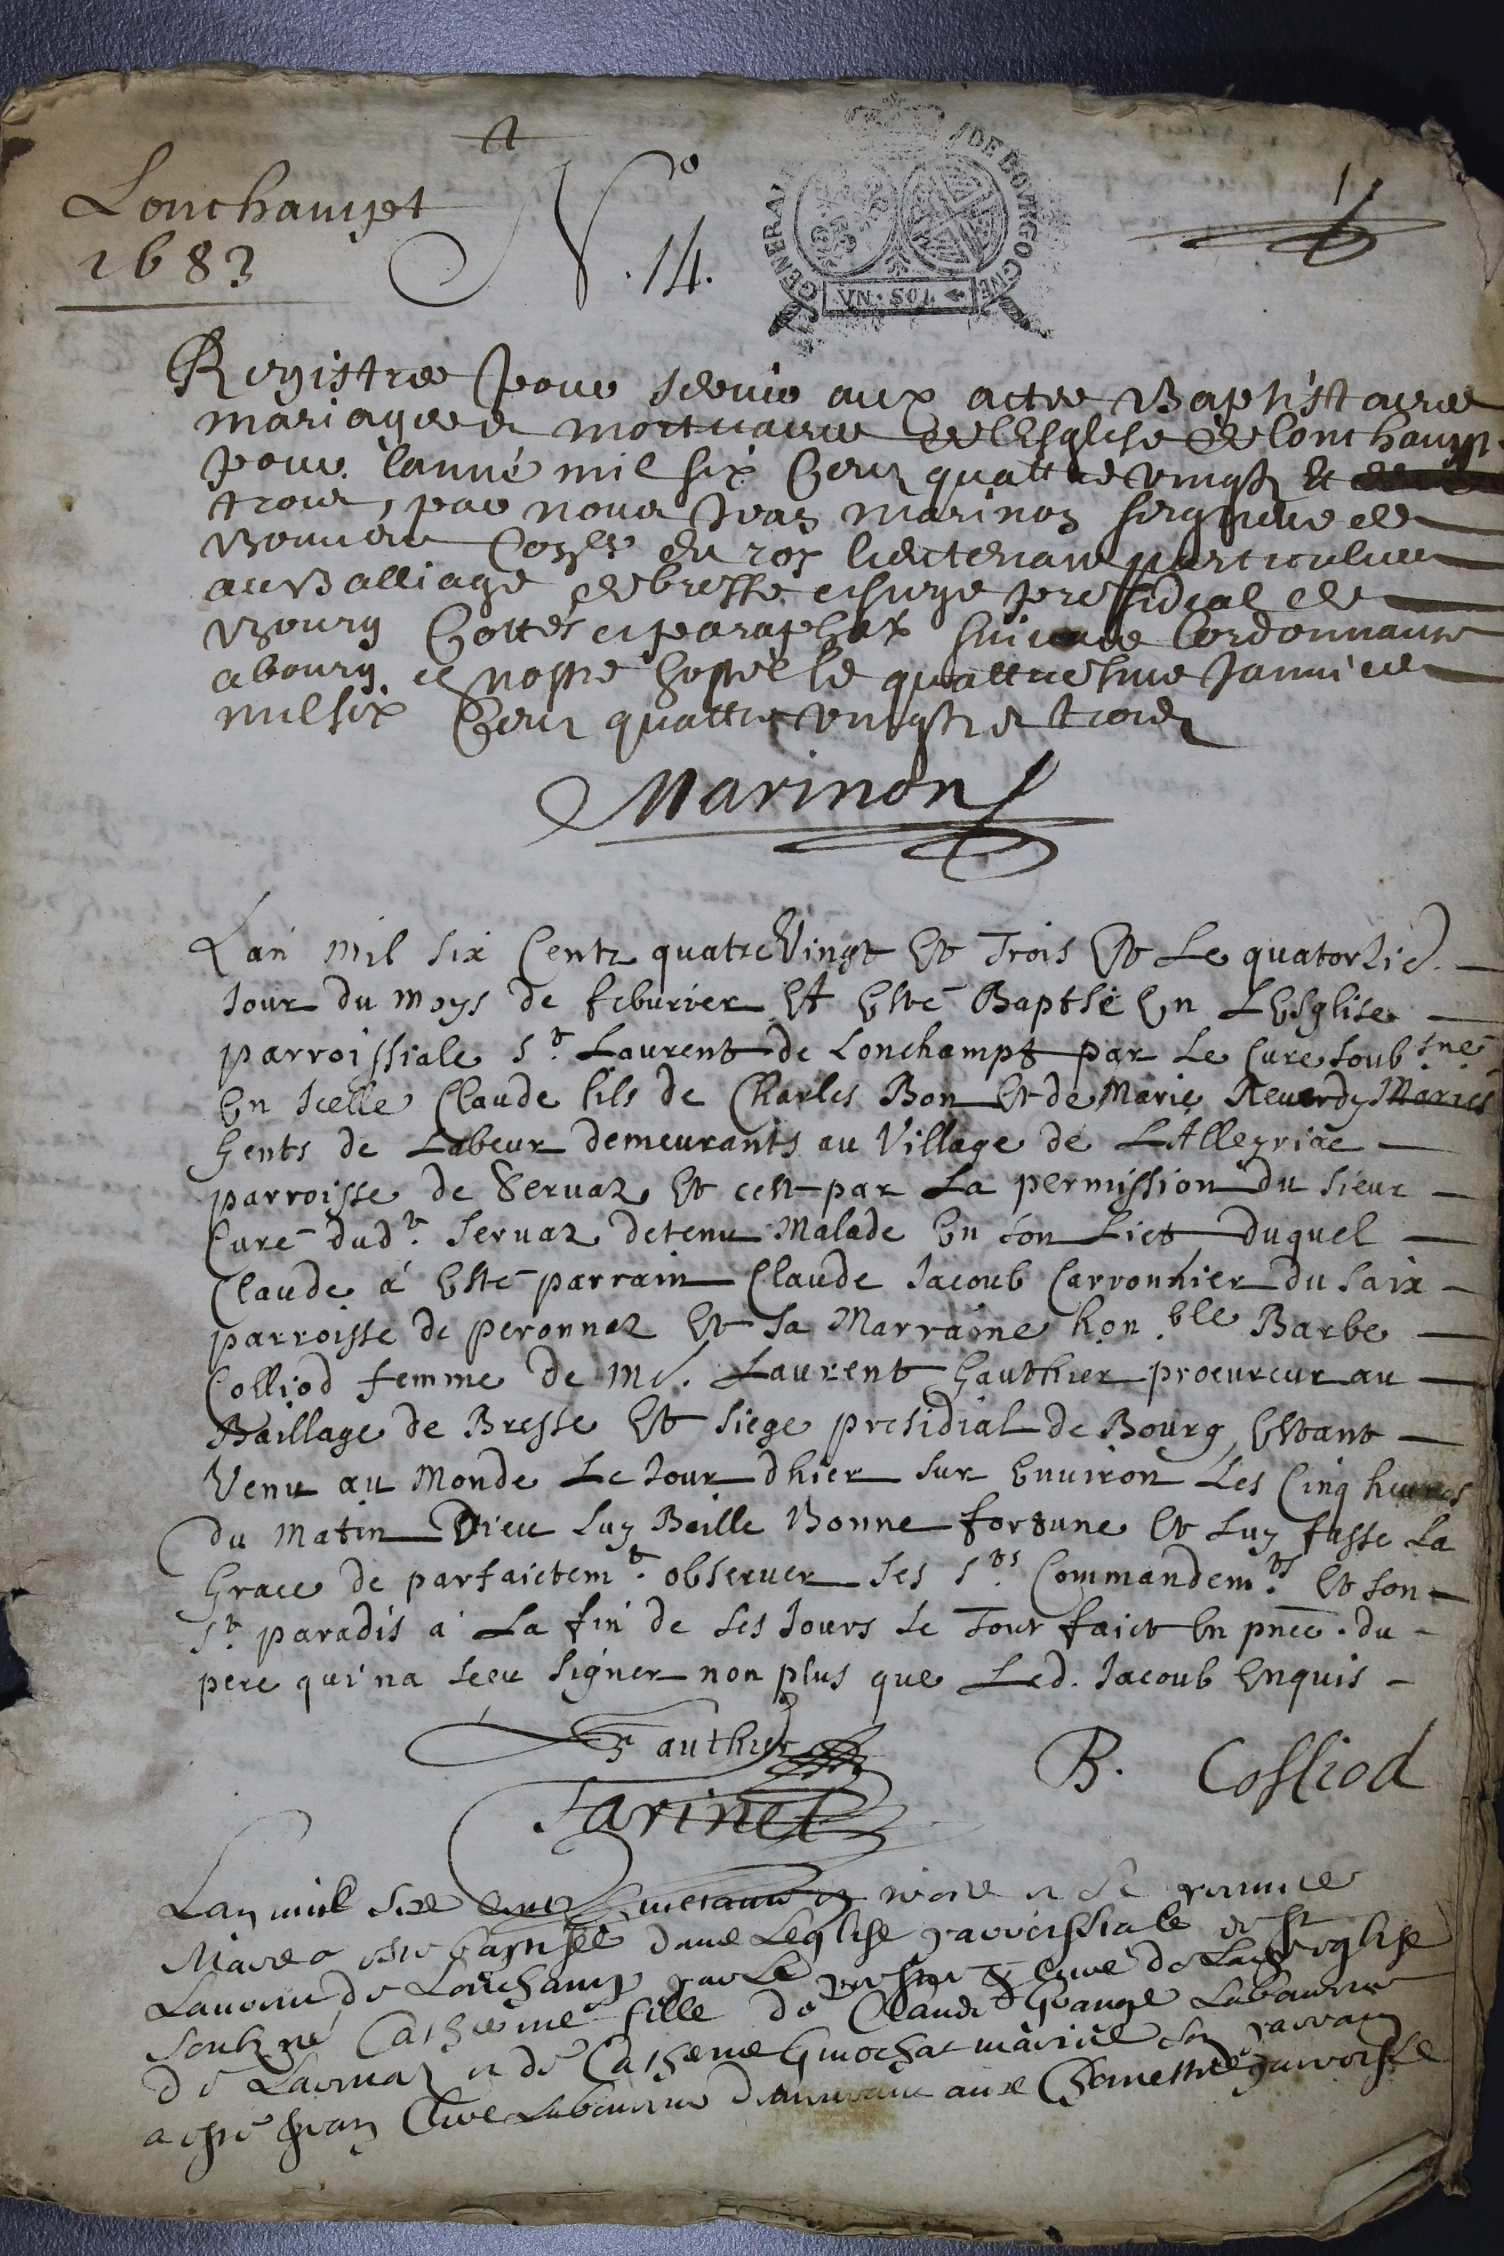 A
Lonchampt
1683
N.o 14.
GENERAL DE BOURGOGNE
VN · SOL
Registre pour servir aux actes Baptistaires
mariages et mortuaires de lEsglise de lonchampt
pour lanné mil six Centz quattre vingtz et
trois, par nous Jean Marinon seigneur de
Conser du roy lieutenant particulier
au Balliage de bresse et siege presidial de
Bourg Cottés et paraphéz suivant lordonnance
a bourg et nostre hostel le quattriesme Janvier
mil six Centz quattre vingtz et trois
Marinon
Lan mil six Centz quatre Vingt Et Trois Et Le quatorzie.
Jour du moys de feburier At Esté Baptsé En LEsglise
parroissiale St. Laurent de Lonchampt par Le Cure soubsné
En Icelle Claude fils de Charles Bon Et de Marie Reuerdy Mariés
Gents de Labeur demeurants au Village de LAlleyriac
parroisse de Seruaz Et cest par La permission du sieur
Curé dudt. Seruaz detenu Malade En son Lict, duquel
Claude à Esté parrain Claude Jacoub Carronnier du Saix
parroisse de peronnaz Et Sa Marraine hon.ble Barbe
Colliod femme de Me. Laurent Gauthier procureur au
Baillage de Bresse Et Siege presidial de Bourg, Estant
Venu au Monde Le Jour dhier sur Enuiron Les Cinq heures
du Matin Dieu Luy Baille Bonne fortune Et Luy fasse La
Grace de parfaictemt. obseruer Ses Sts. Commandemts. Et Son
St. paradis a La fin de Ses Jours Le Tout faict En pnce. du
pere qui na sceu Signer non plus que Led. Jacoub Enquis
Gauthier
B. Colliod
Farinet
Lan mil six et le
Mars a esté baptisée dans Leglise parroissiale de St
Laurent de Lonchamp par Le curé de Lad eglise
soubzné Catherine fille de Claude Grange Laboureur
de et de Catherine Guochat mariés son parrain
a esté Jean Laboureur demeurant aux parroisse